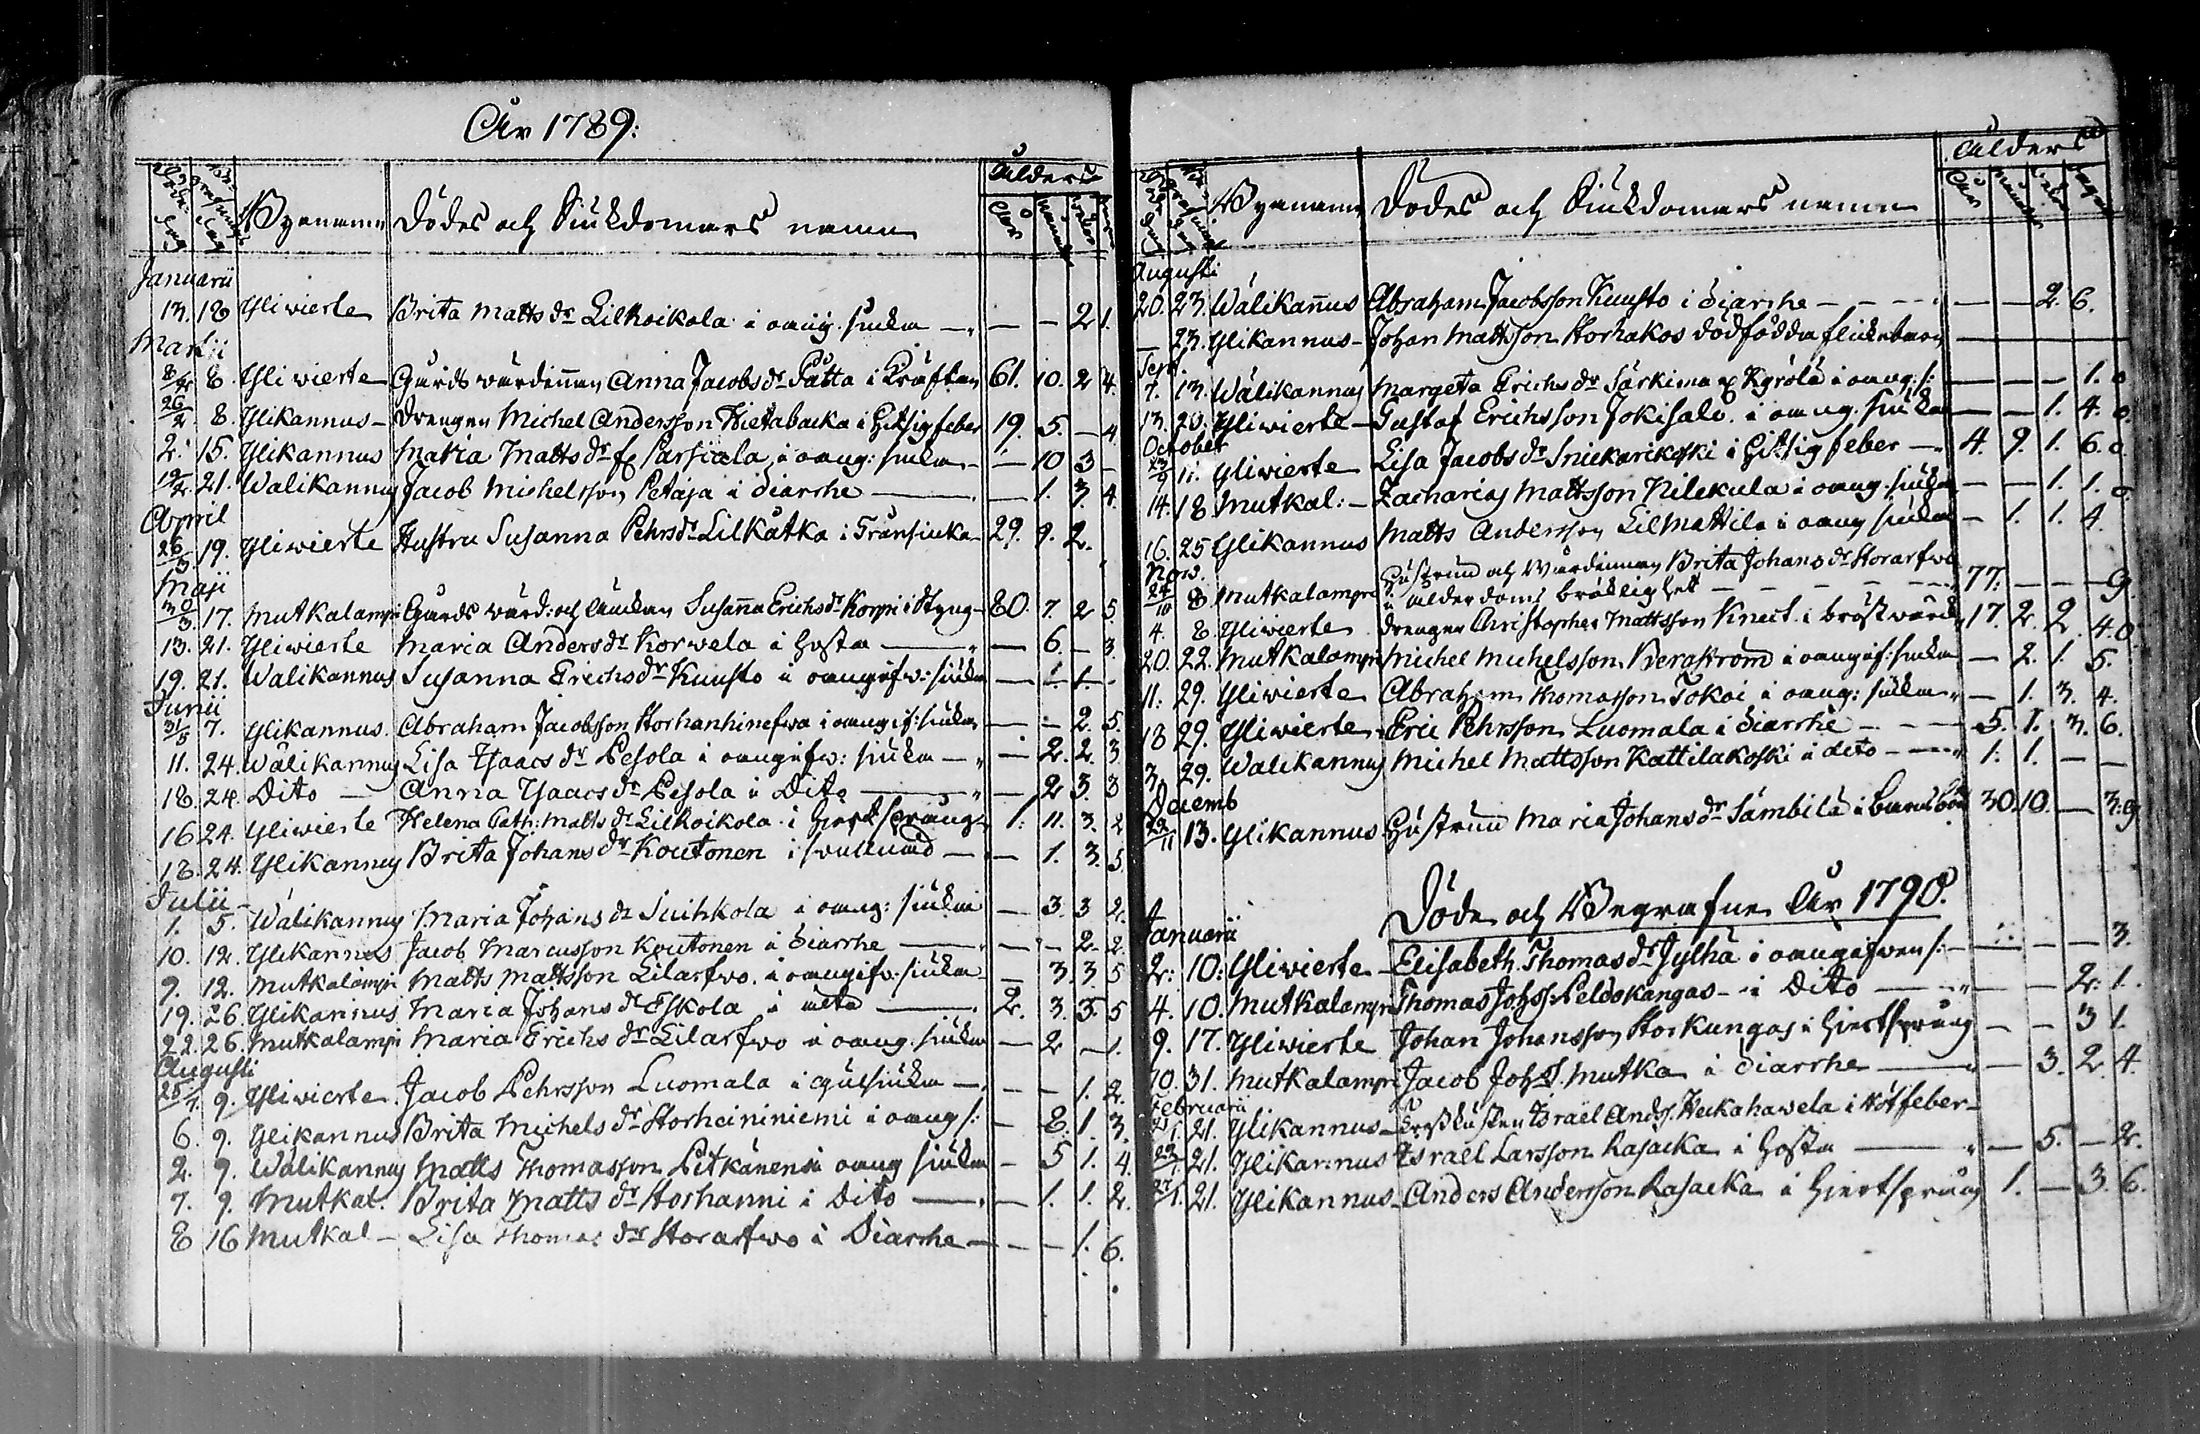 År 1789:
Döde dag Begrafnings dag Byenamn Dödes och Siukdomars namn Ålders År Månad
Januarii
13. 18 Yliwierte Brita Matts dr Lilkoikola i oang. siukm — — — 2 1.
Martii
8/2 8. Yliwierte Gårds wärdinnan Anna Jacobs dr Pätta i Kräftan 61. 10. 2 4.
26/2 8. Ylikannus - Drengen Michel Andersson Hietabacka i Hitsig feber 19. 5. — 4
2. 15. Ylikannus Maria Matts dr i oang: siukm — — 10 3 —
19/2 21. Wälikannus Jacob Michelsson Petäja i Diarrhe — — 1. 3. 4.
April
26/3 19. Yliwierte Hustru Susanna Pehrs dr Lilkåtka i Trånsiuka 29. 9. 2.
Maji
30/3 17. Mutkalampi Gårds wärd: och Änckan Susanna Erichs dr Korpi i Styng - 80. 7. 2 5.
13. 21. Yliwierte Maria Anders dr Korwela i Hosta — — 6. — 3.
19. 21. Wälikannus Susanna Erichs dr Kuusto i oangifw: siukm — 1. 1. —
Junii
31/5 7. Ylikannus. Abraham Jacobsson Storhanhinefwa i oangif: siukm — — 2. 5.
11. 24. Wälikannus Lisa Isaacs dr Pesola i oangifw: siukm — — 2. 2. 3
18. 24. Dito — Anna Isaacs dr Pesola i Dito — — 2 3. 3
16 24. Yliwierte Helena Cath: Matts dr Lilkoikola i Hiertsprång 1. 11. 3. 2
18. 24. Ylikannus Brita Johans dr Koutonen i — — 1. 3. 5.
Julii -
1. 5. Wälikannus Maria Johans dr Suihkola i oang: siukm — 3. 3 2.
10. 12. Ylikannus Jacob Marcusson Koutonen i Diarrhe — — — 2. 2.
9. 12. Mutkalampi Matts Mattsson Lilarfwo i oangifw: siukm — 3. 3. 5
19. 26. Ylikannus Maria Johans dr Eskola i — 2. 3. 3. 5
22. 26. Mutkalampi Maria Erichs dr Lilarfwo i oang. siukm — 2 — 1.
Augusti
25/7. 9. Yliwierte. Jacob Pehrsson Luomala i Gulsiukm — — — 1. 2.
6. 9. Ylikannus Brita Michels dr Storheininiemi i oang s: — 8. 1 3.
2. 9. Wälikannus Matts Thomasson Pitkänen i oang siukm — 5 1. 4.
7. 9. Mutkal. Brita Matts dr Storhanni i Dito — — 1. 1. 2.
8 16 Mutkal - Lisa Thomas dr Storarfwo i Diarrhe — — — 1. 6.
Byenamn Dödes och Siukdomars namn Ålders År Månad
Augusti
20. 23. Wälikannus Abraham Jacobsson Kuusto i Diarrhe - - - — — 2. 6.
— 23. Ylikannus - Johan Mattsson Storhakos dödfödda flickebarn —
Sept.
7. 13. Wälikannus Margeta Erichs dr Särkima i oang: s: — — — 1.
13. 20. Yliwierte - Gustaf Erichsson Jokisalo i oang. siukm — — 1. 4.
October
23/9 11. Yliwierte Lisa Jacobs dr Sniekarikoski i Hitsig feber — 4. 9. 1. 6.
14. 18. Mutkal: - Zacharias Mattsson Nilekula i oang. siukm — — 1. 1.
16. 25 Ylikannus Matts Andersson Lilmattila i oang siukm — 1. 1. 4.
Now.
24/10 8 Mutkalampi Hustrun och Wärdinnan Brita Johans dr Storarfwo
i ålderdoms bräklighet - - - 77. — — —
4. 8. Yliwierte Drengen Christopher Mattsson Knect i bröstwärk 17. 2. 2. 4.
20. 22. Mutkalampi Michel Michelsson Bergström i oangif: siukm — 2. 1. 5.
11. 29. Yliwierte Abraham Thomasson Tokoi i oang: siukm — 1. 3. 4.
18 29. Yliwierte Eric Pehrsson Luomala i Diarrhe - - - 5. 1. 3. 6.
3. 29. Wälikannus Michel Mattsson Kattilakoski i dito - - 1. 1. — —
Decemb
29/11 13. Ylikannus Hustrun Maria Johans dr Sämbilä i Barnsbörd 30. 10. — 3.
Döde och Begrafne År 1790.
Januarii
2: 10: Yliwierte - Elisabeth Thomas dr Jylhä i oangifwen s: — — — 3.
4. 10. Mutkalampi Thomas Johss. Peldokangas - i Dito — — — 2. 1.
9. 17. Yliwierte Johan Johansson Storkungas i Hiertsprång — — 3 1.
10. 31. Mutkalampi Jacob Joh. S. Mutka i Diarrhe — — 3. 2. 4.
Februarii
21. Ylikannus - Israel Ands. Heikahawela i Rötfeber -
29/1. 21. Ylikannus Israel Larsson Rasacka i Hosta — — 5. — 2.
27/1. 21. Ylikannus - Anders Andersson Rasacka i Hiertsprång 1. — 3. 6.